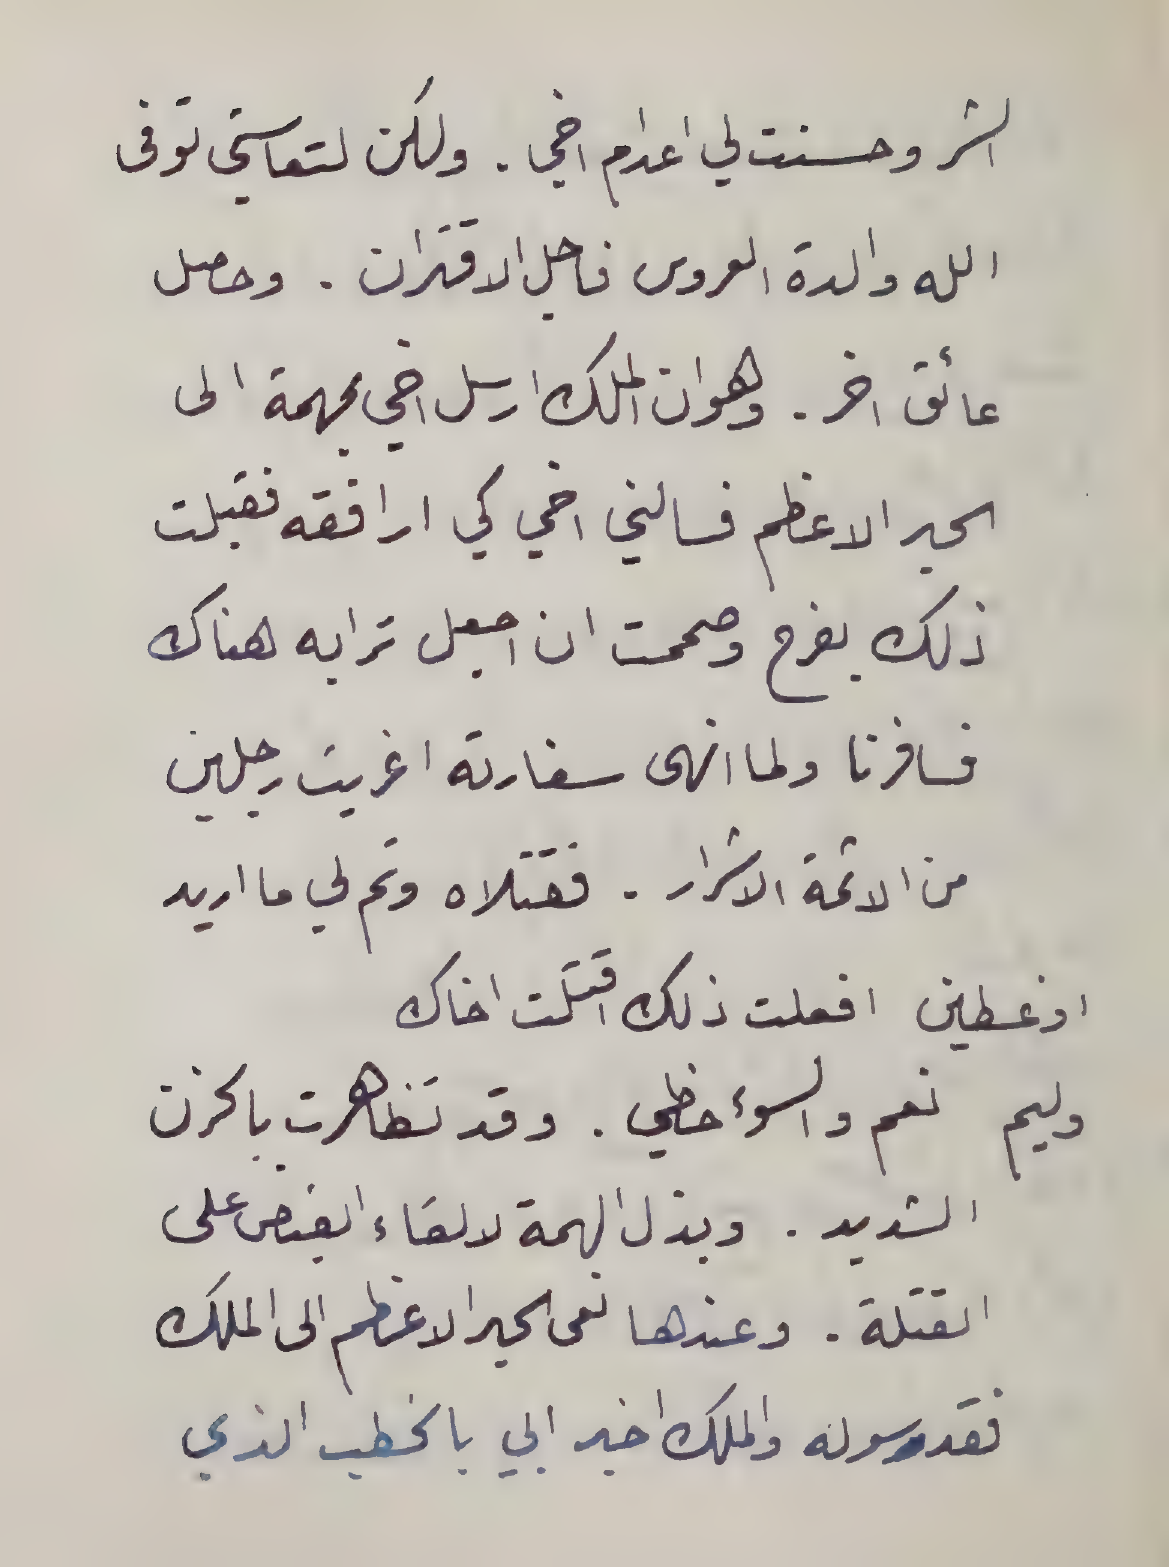 الشر وحسنت لي اعدام اخي . ولكن لتعاستي توفى
الله والدة العروس فاجل الاقتران . وحصل
عائق اخر . وهو ان الملك ارسل اخي بمهمة الى
الحبر الاعظم فسالني اخي كي ارافقه فقبلت
ذلك بفرح وصممت ان اجعل ترابه هناك
فسافرنا ولما انهى سفارته اغريت رجلين
من الائمة الاشرار . فقتلاه وتم لي ما اريد
اوغسطين افعلت ذلك اقتلت اخاك
وليم نعم والسوء حظي . وقد تظاهرت بالحزن
الشديد . وبذل الهمة لالقاء القبض على
القتلة . وعندها نعى الحبر الاعظم الى الملك
فقد رسوله والملك اخبر ابي بالخطب الذي